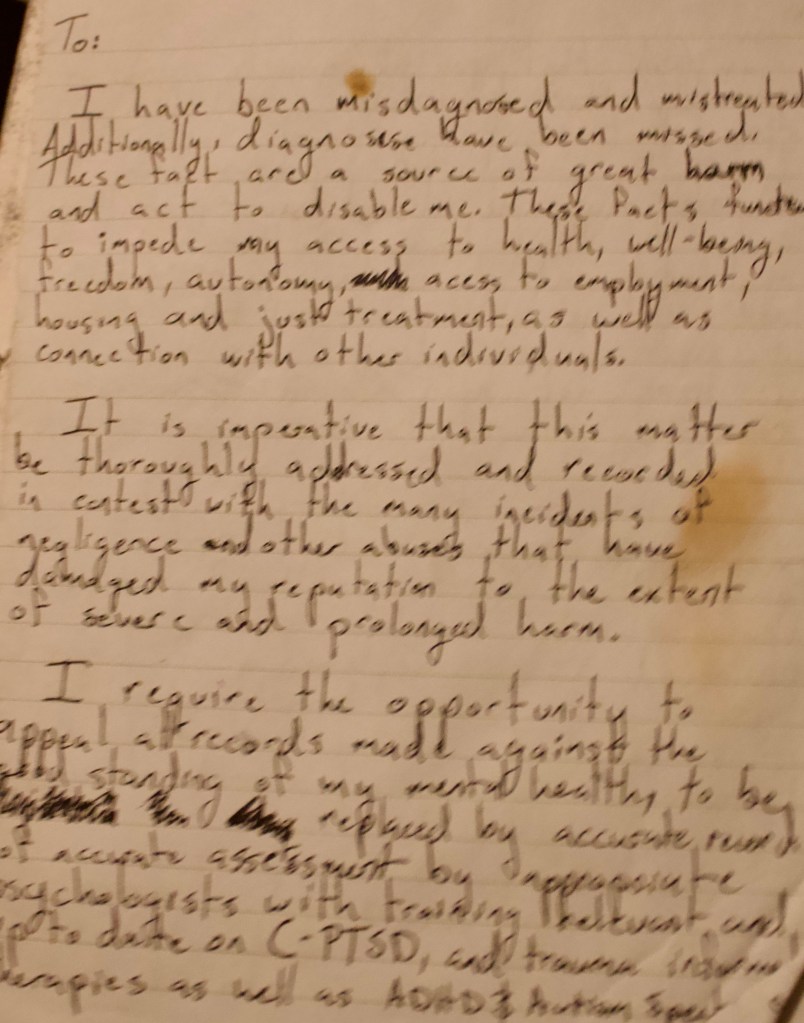 To:
I have been misdagnosed and mistreated
Additionally, diagnosise have been missed.
These fact are a source of great harm
and act to disable me. These Facts
to impede my access to health, well-being,
freedom, autonomy, acess to employment,
housing and just treatment, as well as
connection with other individuals.
It is imperative that this matter
be thoroughly addressed and recorded
in contest with the many incidents of
negligence and other abuses that have
damaged my reputation to the extent
of severe and prolonged harm.
I require the opportunity to
appeal all records made against the
good standing of my mental health, to be
replaced by accurate record
of accurate assessment by
psychologists with training relevant and
up to date on C-PTSD, and trauma inform
therapies as well as ADHD & Autism Spect